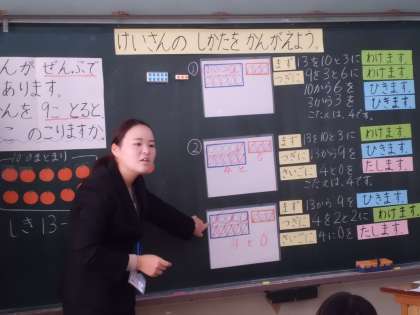 けいさんの しかたを かんがえよう。
んが ぜんぶで
あります。
んを 9こ とると
この こりますか
10のまとまり
しき 13-
①
まず 13を10と3に わけます。
つぎに 9を3と6に わけます。
10から6を ひきます。
3から3を ひきます。
こたえは、4です。
②
まず 13を10と3に わけます。
つぎに 13から9を ひきます。
さいごに 4と0を たします。
こたえは、4です。
4と0
まず 13から9を ひきます。
つぎに 4を2と2に わけます。
さいごに 4に0を たします。
4と0